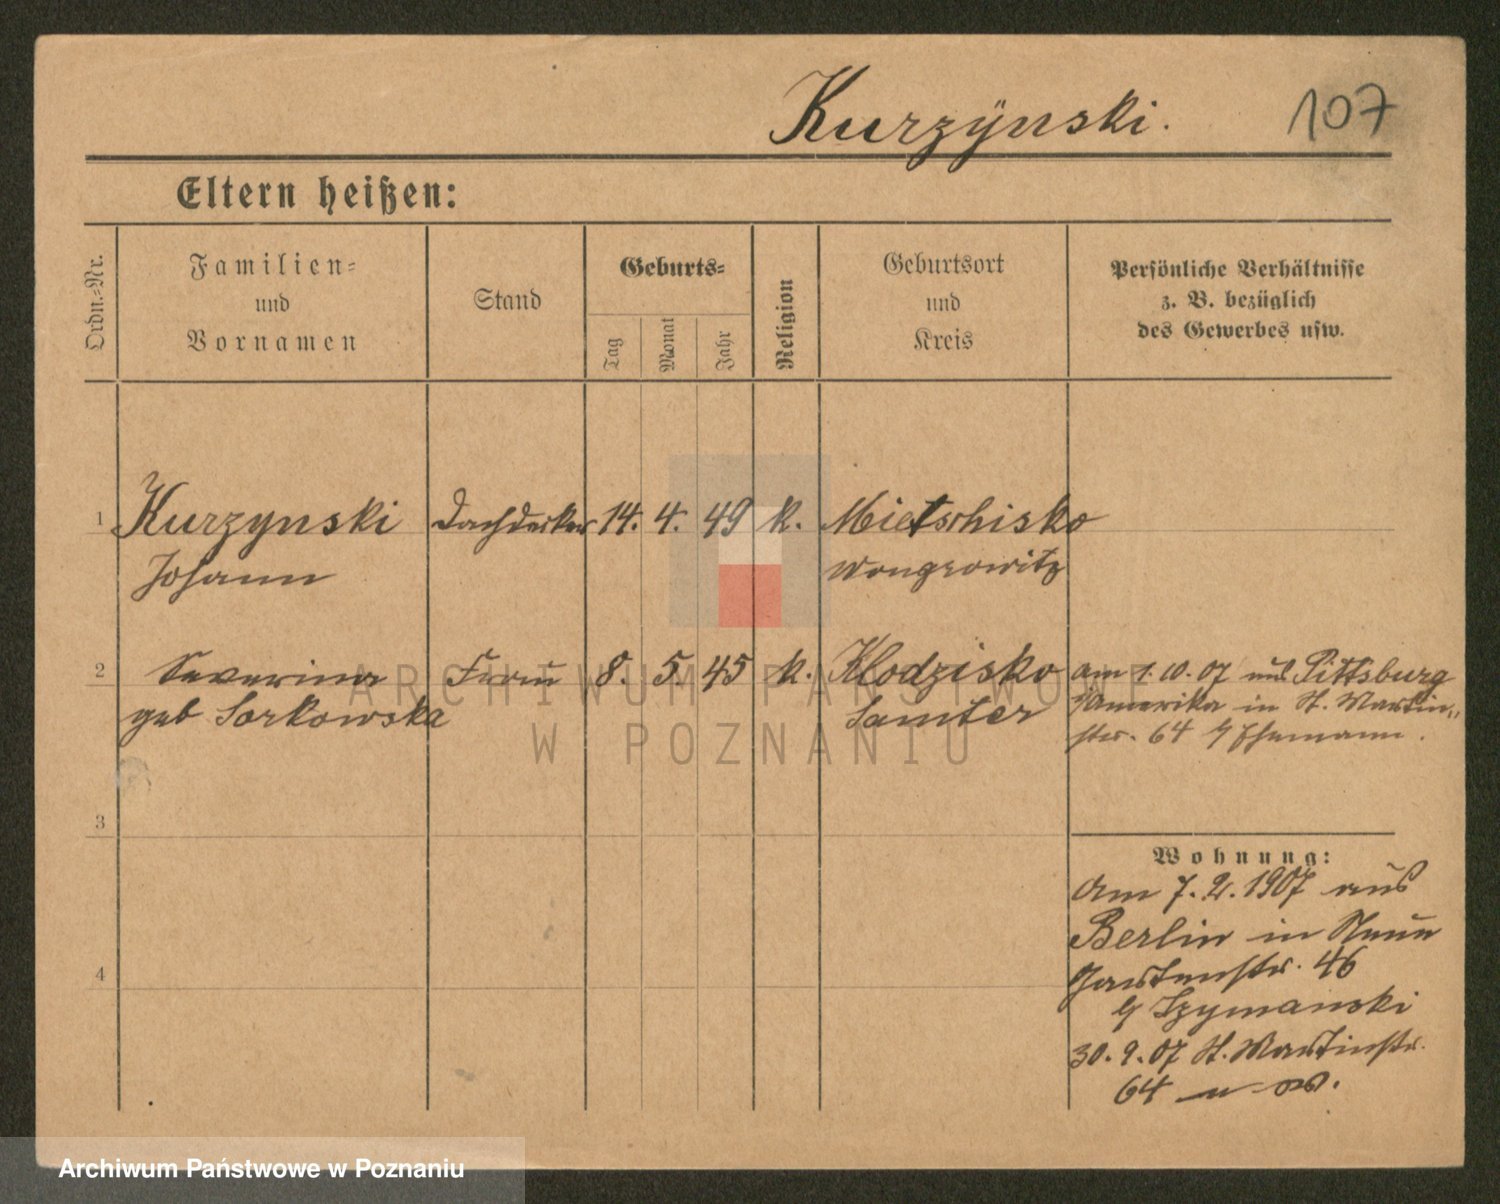 Kurzÿnski.
107
Eltern heißen:
Ordn.-Nr.
Familien-
und
Vornamen
Stand
Geburts-
Tag
Monat
Jahr
Religion
Geburtsort
und
Kreis
Persönliche Verhältnisse
z. B. bezüglich
des Gewerbes usw.
1 Kurzynski Dachdecker 14. 4. 49 k. Mietschisko
Johann Wongrowitz
2 Severina Frau 8. 5. 45 k. Klodzisko am 1.10.07 aus Pittsburg
geb Sorkowska Samter Amerika in St. Martin-
str. 64 b/ Ehemann.
3
Wohnung:
Am 7.2.1907 aus
Berlin in Neue
4
Gartenstr. 46
b/ Szymanski
30.9.07 St. Martinstr.
64
ARCHIWUM PAŃSTWOWE
W POZNANIU
Archiwum Państwowe w Poznaniu